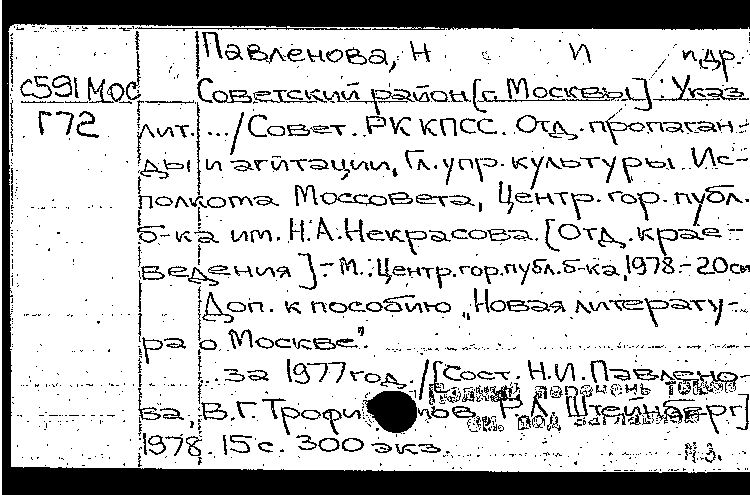 Павленова, Н И и др.
с591Мос Советский район [г. Москвы]: Указ
Г72 лит. .../Совет. РК КПСС. Отд. пропаган-
ды и агитации, Гл. упр. культуры Ис-
полкома Моссовета, Центр. гор. публ.
б-ка им. Н.А.Некрасова. [Отд. крае-
ведения].- М.: Центр.гор.публ.б-ка, 1978.- 20см
Доп. к пособию „Новая литерату-
ра о Москве".
...за 1977 год. /[Сост. Н.И.Павлено-
Полный перечень томов
ва, В.Г. Р.А. Штейнберг]
см. под заглавием
1978. 15 с. 300 экз.
М.З.